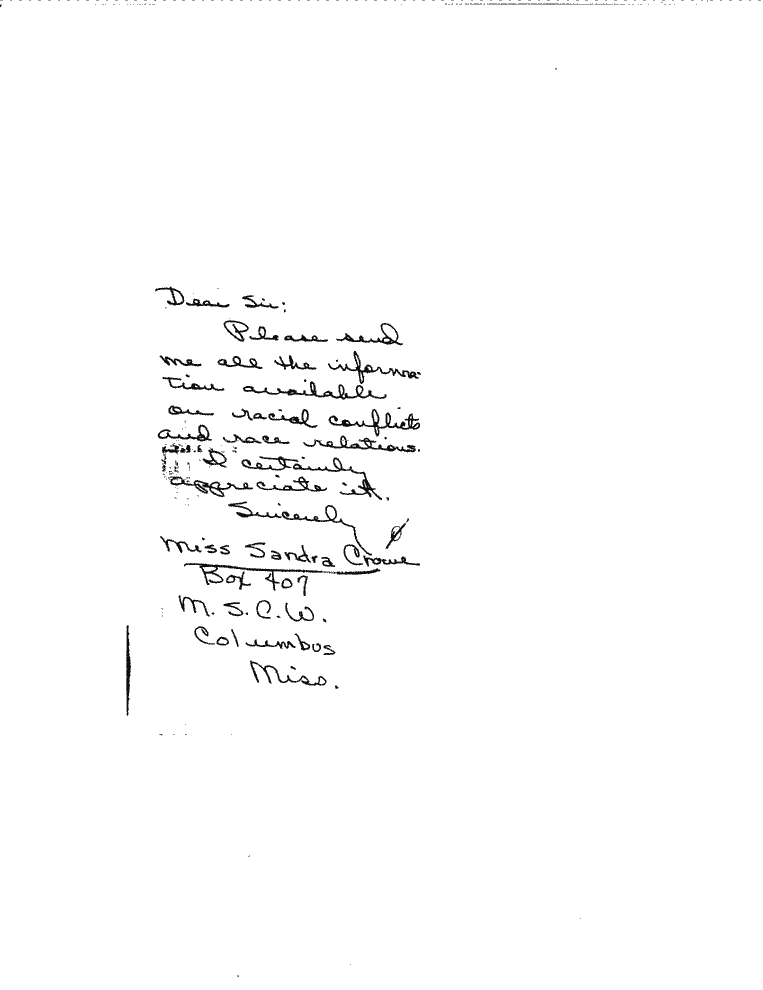 Dear Sir:
Please send
me all the informa-
tion available
on racial conflicts
and race relations.
I certainly
appreciate it.
Sincerely
Miss Sandra Crowe
Box 407
M. S. C. W.
Columbus
Miss.